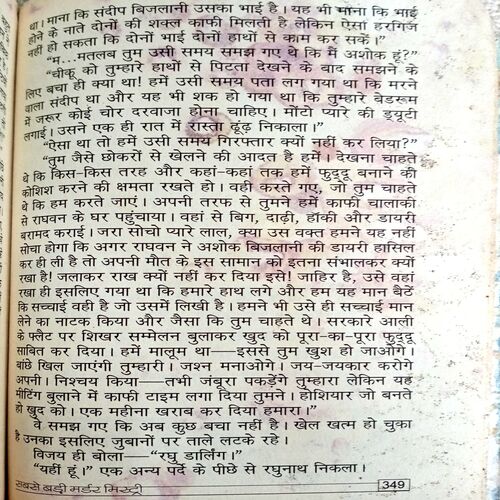 था। माना कि संदीप बिजलानी उसका भाई है। यह भी माना कि भाई
होने के नाते दोनों की शक्ल काफी मिलती है लेकिन ऐसा हरगिज
नहीं हो सकता कि दोनों भाई दोनों हाथों से काम कर सकें।"
"म...मतलब तुम उसी समय समझ गए थे कि मैं अशोक हूं?"
"चीकू को तुम्हारे हाथों से पिटता देखने के बाद समझने के
लिए बचा ही क्या था! हमें उसी समय पता लग गया था कि मरने
वाला संदीप था और यह भी शक हो गया था कि तुम्हारे बेडरूम
में जरूर कोई चोर दरवाजा होना चाहिए। मोंटो प्यारे की ड्यूटी
लगाई। उसने एक ही रात में रास्ता ढूंढ़ निकाला।"
"ऐसा था तो हमें उसी समय गिरफ्तार क्यों नहीं कर लिया?"
"तुम जैसे छोकरों से खेलने की आदत है हमें। देखना चाहते
थे कि किस-किस तरह और कहां-कहां तक हमें फुद्दू बनाने की
कोशिश करने की क्षमता रखते हो। वही करते गए, जो तुम चाहते
थे कि हम करते जाएं। अपनी तरफ से तुमने हमें काफी चालाकी
से राघवन के घर पहुंचाया। वहां से बिग, दाढ़ी, हॉकी और डायरी
बरामद कराई। जरा सोचो प्यारे लाल, क्या उस वक्त हमने यह नहीं
सोचा होगा कि अगर राघवन ने अशोक बिजलानी की डायरी हासिल
कर ही ली है तो अपनी मौत के इस सामान को इतना संभालकर क्यों
रखा है! जलाकर राख क्यों नहीं कर दिया इसे! जाहिर है, उसे वहां
रखा ही इसलिए गया था कि हमारे हाथ लगे और हम यह मान बैठें
कि सच्चाई वही है जो उसमें लिखी है। हमने भी उसे ही सच्चाई मान
लेने का नाटक किया और जैसा कि तुम चाहते थे। सरकारे आली
के फ्लैट पर शिखर सम्मेलन बुलाकर खुद को पूरा-का-पूरा फुद्दू
साबित कर दिया। हमें मालूम था—इससे तुम खुश हो जाओगे।
बांछे खिल जाएंगी तुम्हारी। जश्न मनाओगे। जय-जयकार करोगे
अपनी। निश्चय किया—तभी जंबूरा पकड़ेंगे तुम्हारा लेकिन यह
मीटिंग बुलाने में काफी टाइम लगा दिया तुमने। होशियार जो बनते
हो खुद को। एक महीना खराब कर दिया हमारा।"
वे समझ गए कि अब कुछ बचा नहीं है। खेल खत्म हो चुका
है उनका इसलिए जुबानों पर ताले लटके रहे।
विजय ही बोला—"रघु डार्लिंग।"
"यहीं हूं।" एक अन्य पर्दे के पीछे से रघुनाथ निकला।
सबसे बड़ी मर्डर मिस्ट्री 349